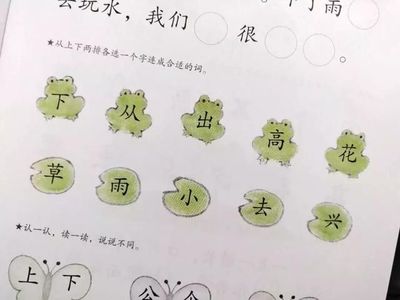 去玩水，我们○很○○。
★从上下两排各选一个字连成合适的词。
下 从 出 高 花
草 雨 小 去 兴
★认一认，读一读，说说不同。
上 下